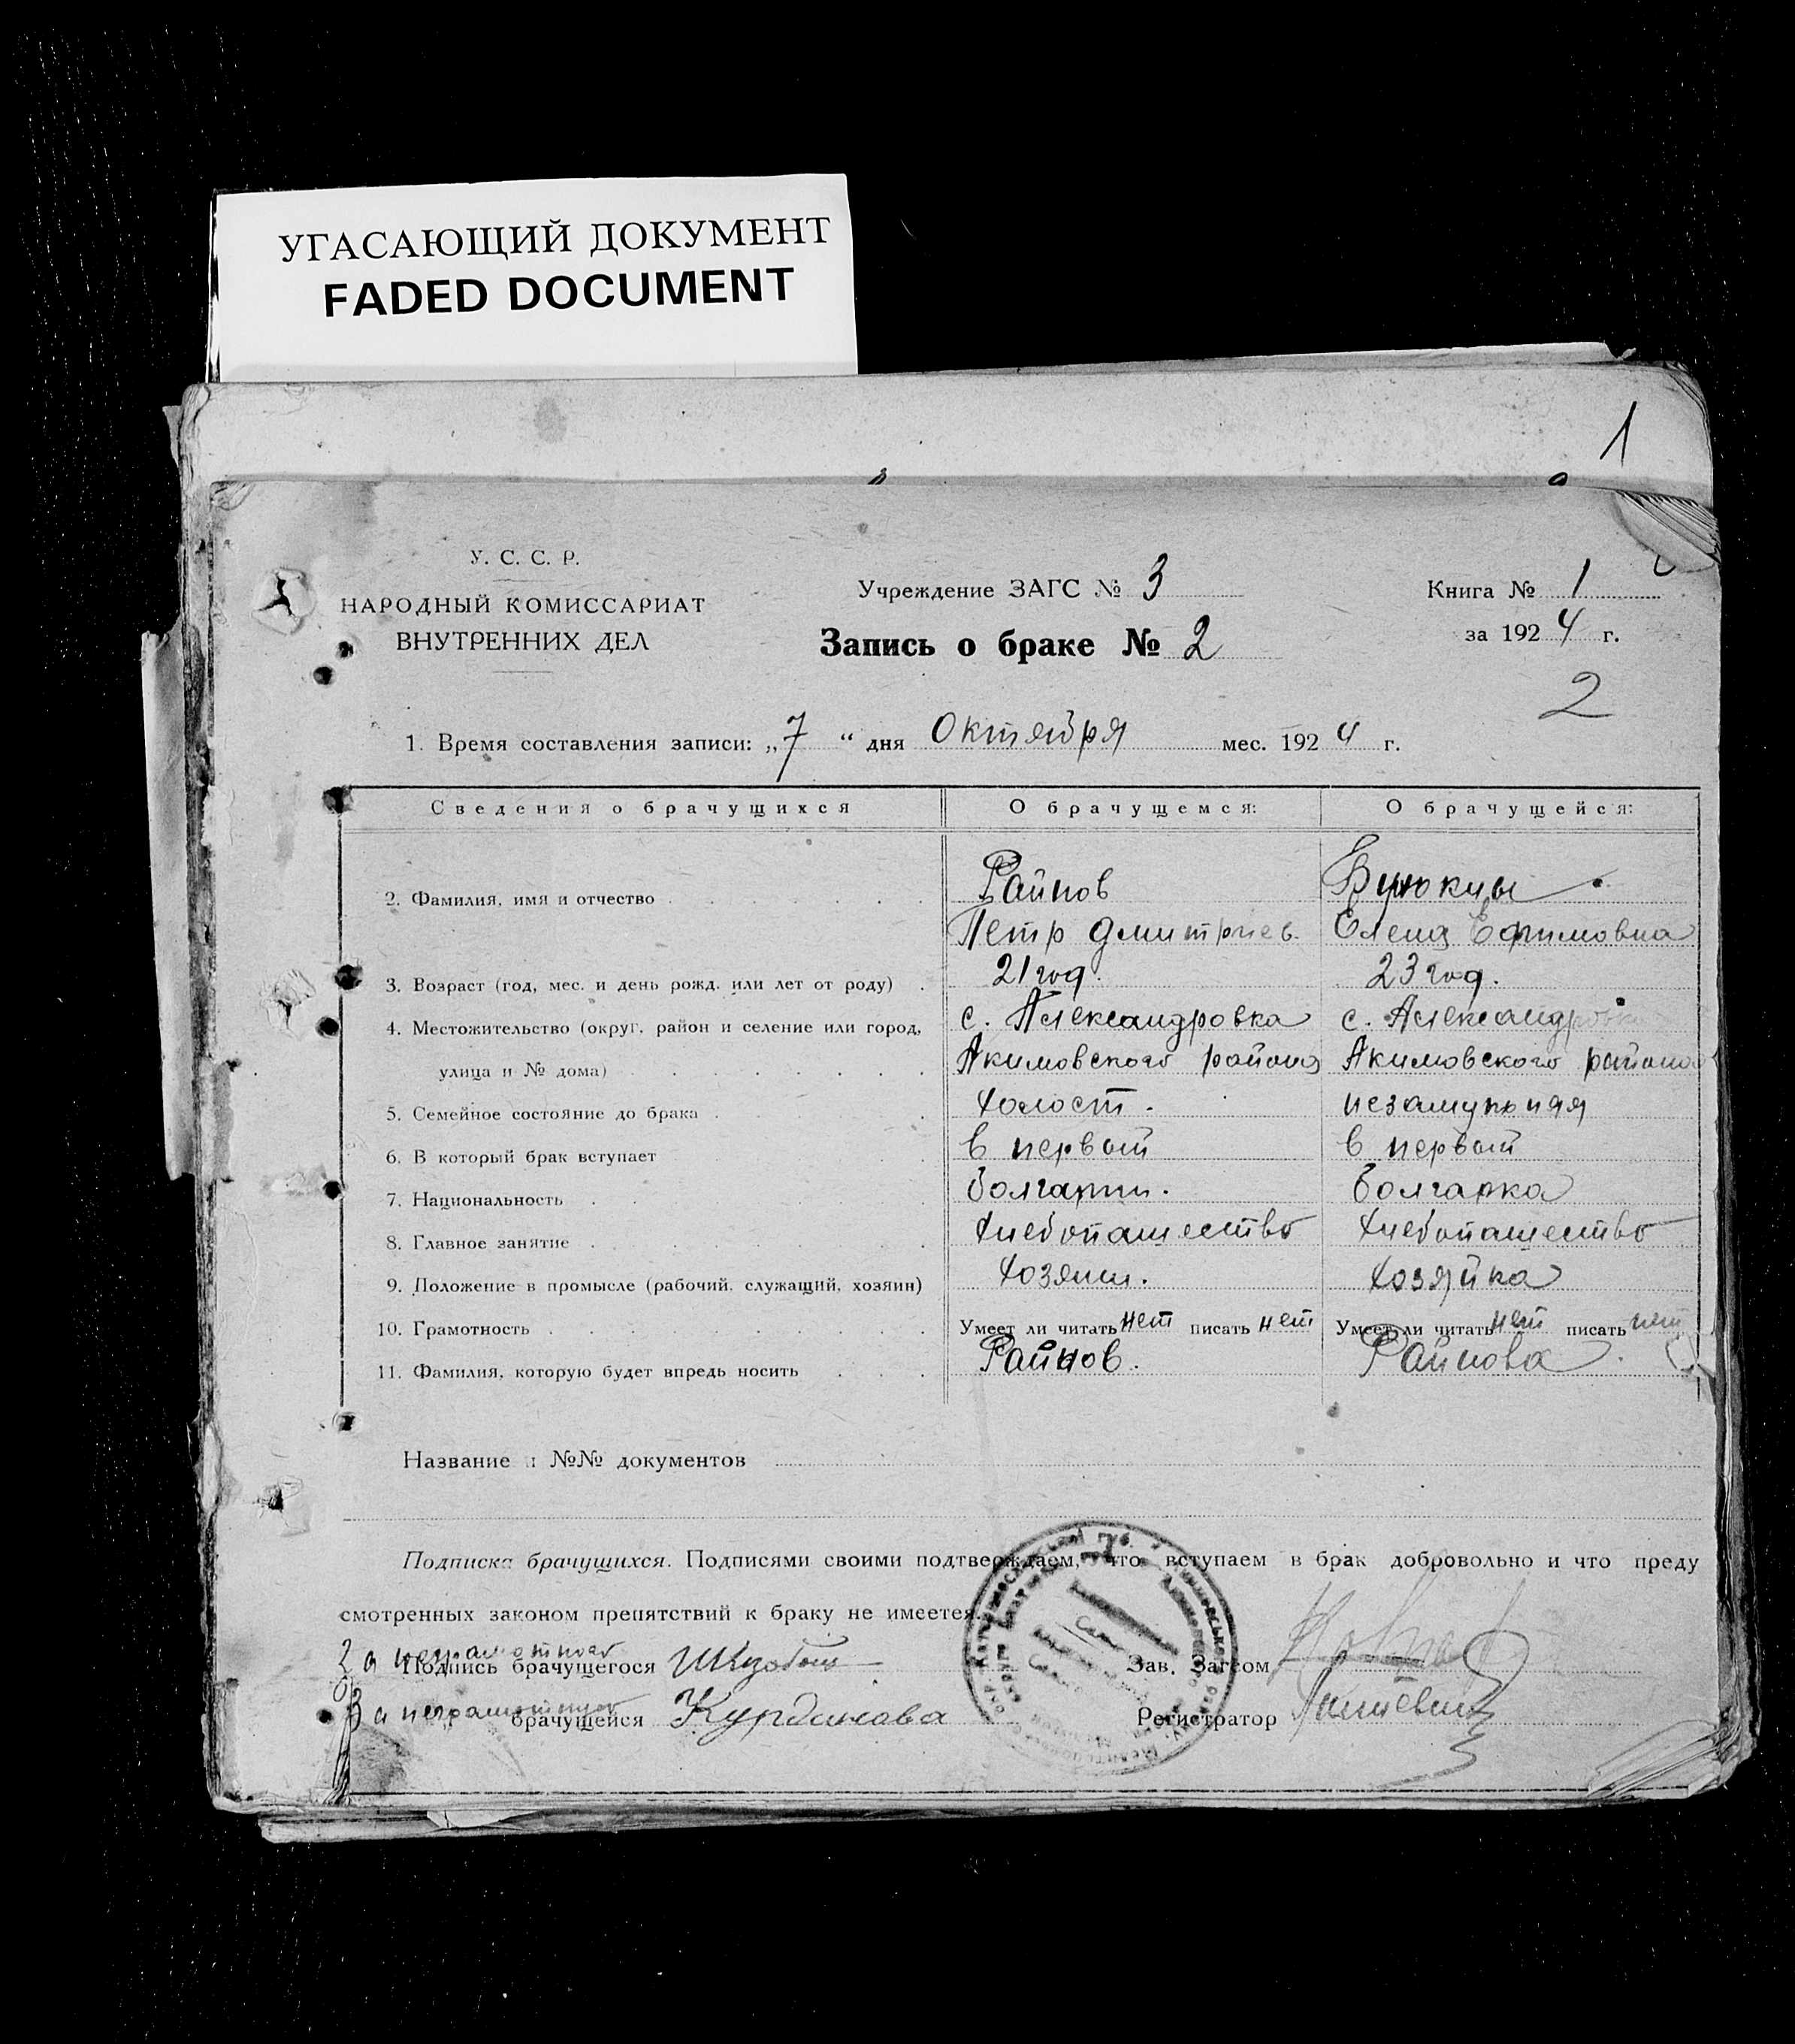 УГАСАЮЩИЙ ДОКУМЕНТ
FADED DOCUMENT
1
У. С. С. Р.
НАРОДНЫЙ КОМИССАРИАТ
ВНУТРЕННИХ ДЕЛ
Учреждение ЗАГС № 3
Запись о браке № 2
Книга № 1
за 1924 г.
2
1. Время составления записи: „7“ дня Октября мес. 1924 г.
Сведения о брачущихся О брачущемся: О брачущейся:
2. Фамилия, имя и отчество Райнов
Петр Дмитриев. Елена Ефимовна
3. Возраст (год, мес. и день рожд. или лет от роду) 21 год. 23 год.
4. Местожительство (округ, район и селение или город, с. Александровка с. Александровка
улица и № дома) Акимовского района Акимовского района
5. Семейное состояние до брака холост. незамужняя
6. В который брак вступает в первый в первый
7. Национальность болгарин. болгарка
8. Главное занятие хлебопашество хлебопашество
9. Положение в промысле (рабочий, служащий, хозяин) хозяин. хозяйка
10. Грамотность Умеет ли читать нет писать нет Умеет ли читать нет писать нет
11. Фамилия, которую будет впредь носить Райнов. Райнова.
Название и №№ документов
Подписка брачущихся. Подписями своими подтверждаем, что вступаем в брак добровольно и что преду
смотренных законом препятствий к браку не имеется.
За неграмотного
Подпись брачущегося
Зав. Загсом
За неграмотную
брачущейся
Регистратор